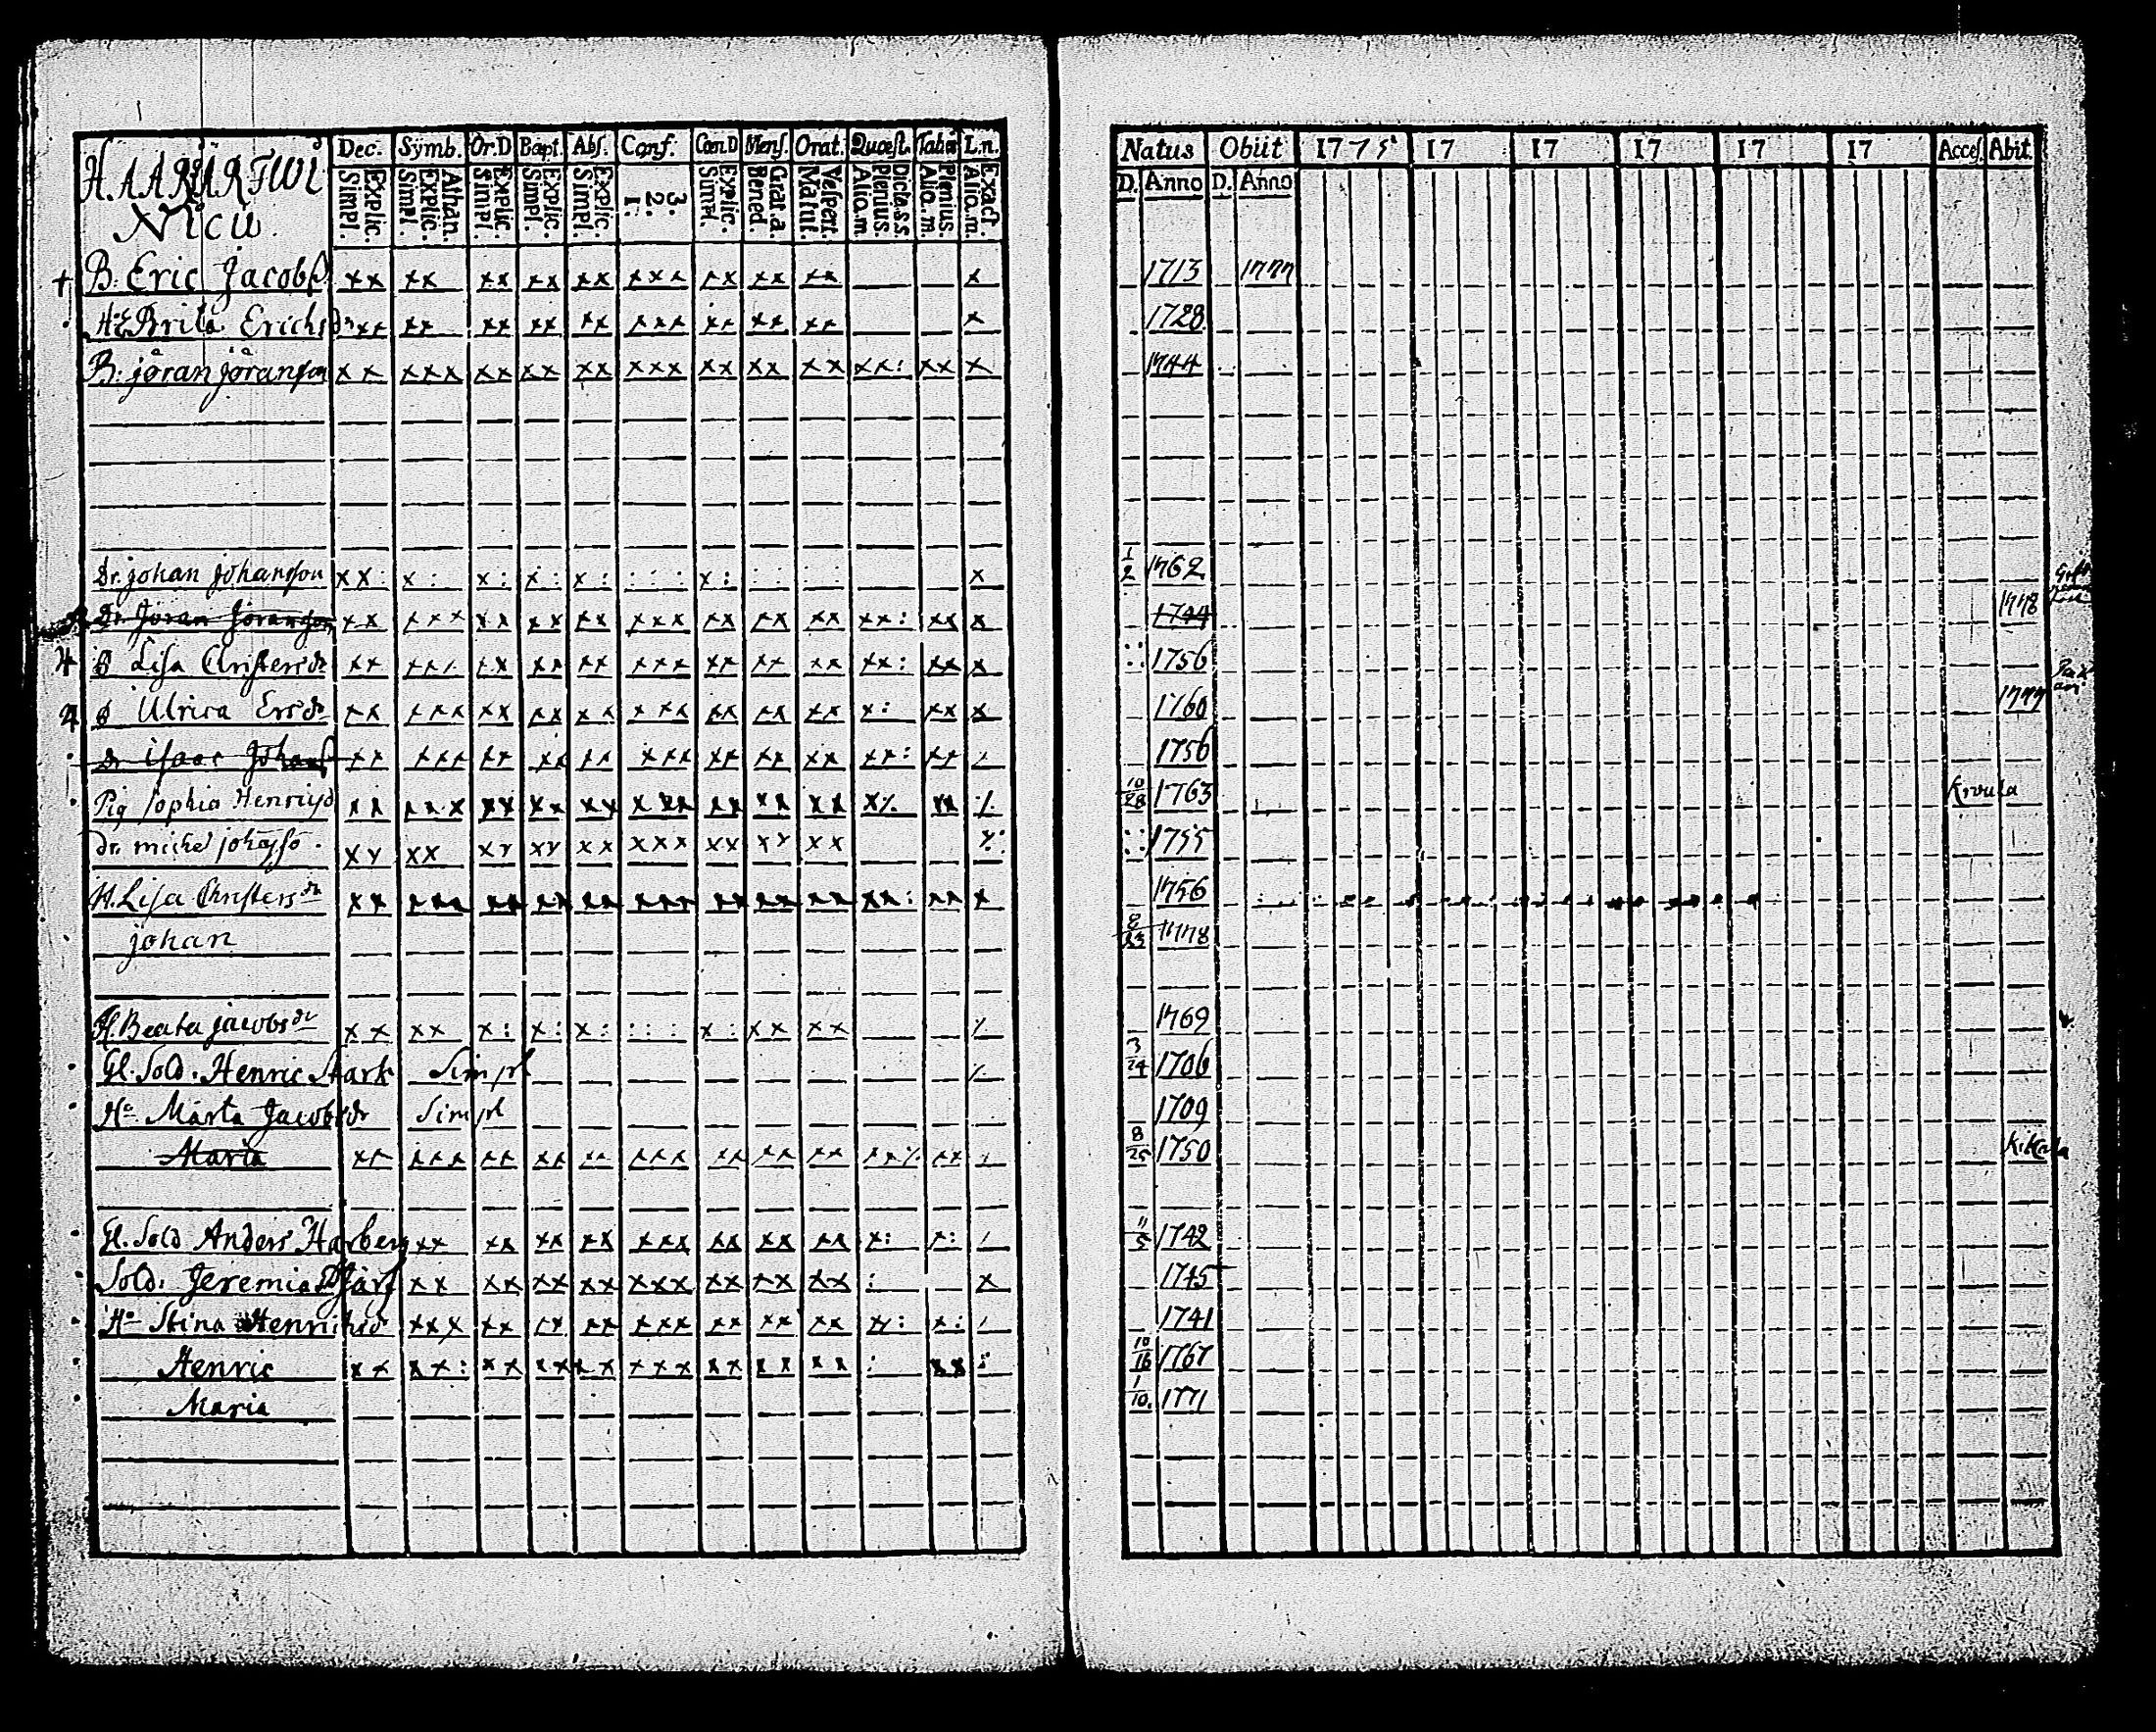 Dec. Symb. Or.D Bapt. Abs. Conf. Cœn.D Mens. Orat. Quæst. L.n. Natus Obiit 1775 17 17 17 17 17 Acces. Abit.
Explic. Simpl. Athan. Explic. Simpl. Explic. Simpl. Explic. Simpl. Explic. Simpl. 3. 2. 1. Explic. Simpl. Grat.a. Bened. Vespert. Matut. Dicta.s.s. Plenius. Alio.m. Plenius. Alio.m. Exact. Alio.m. D. Anno D. Anno
Nicu
B: Eric Jacobs xx xx xx xx xx xxx xx xx xx x 1713 1777
Brita Erichs dr xx xx xx xx xx xxx xx xx xx x 1728
B: jöran jöranson xx xxx xx xx xx xxx xx xx xx xx: xx x 1744
Dr. johan johansson xx: x: x: x: x: : : : x: x 1/2 1762
Dr. Jöran Göransson xx xxx xx xx xx xxx xx xx xx xx: xx x 1744 1778
Lisa Christersdr xx xxx xx xx xx xxx xx xx xx xx: xx x 1756
Ulrica Ersdr xx xxx xx xx xx xxx xx xx xx x: xx x 1760 1777
dr Isaac Johans xx xxx xx xx xx xxx xx xx xx xx: xx 1756
Pig Sophia Henrijsd xx xxx xx xx xx xxx xx xx xx xx 10/28 1763 Kroula
dr. michel xx xx xx xx xx xxx xx xx xx 1755
H. Lisa Christers dr xx xxx xx xx xx xxx xx xx xx xx: xx x 1756
johan 1778
H. Beata jacobs dr xx xx x: x: x: : : : x: xx xx 1769
Gl. Sold. Henric Stark Simpl 3/24 1706
Ho Marta Jacobsdr Simpl 1709
Maria xx xxx xx xx xx xxx xx xx xx xx 8/25 1750 Kikala
Gl. Sold Anders Harberg xx xx xx xx xxx xx xx xx x: x: 11/5 1742
Sold. Jeremias xx xx xx xx xxx xx xx xx : x 1745
Ho Stina Henrichsdr xxx xx xx xx xxx xx xx xx x: x: 1741
Henric xx xx: xx xx xx xxx xx xx xx : xx 10/16 1767
Maria 1/10. 1771